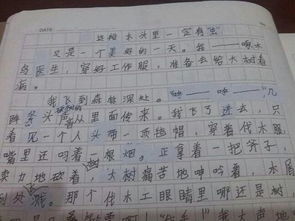 DATE
这棵木头里一定有虫
又是一个美好的一天。我——啄木
鸟医生,穿好工作服,准备去给大树看
病。
我飞到森林深处。"——",几
阵声从里面传来。我飞了过去,只
看见一个人头带一顶毡帽,穿着伐木服
嘴里还叼着根烟。正拿着一把斧子,
卖力地砍着,大树痛苦地呻吟着,木屑
到处。那个伐木工眼睛里哪还是树